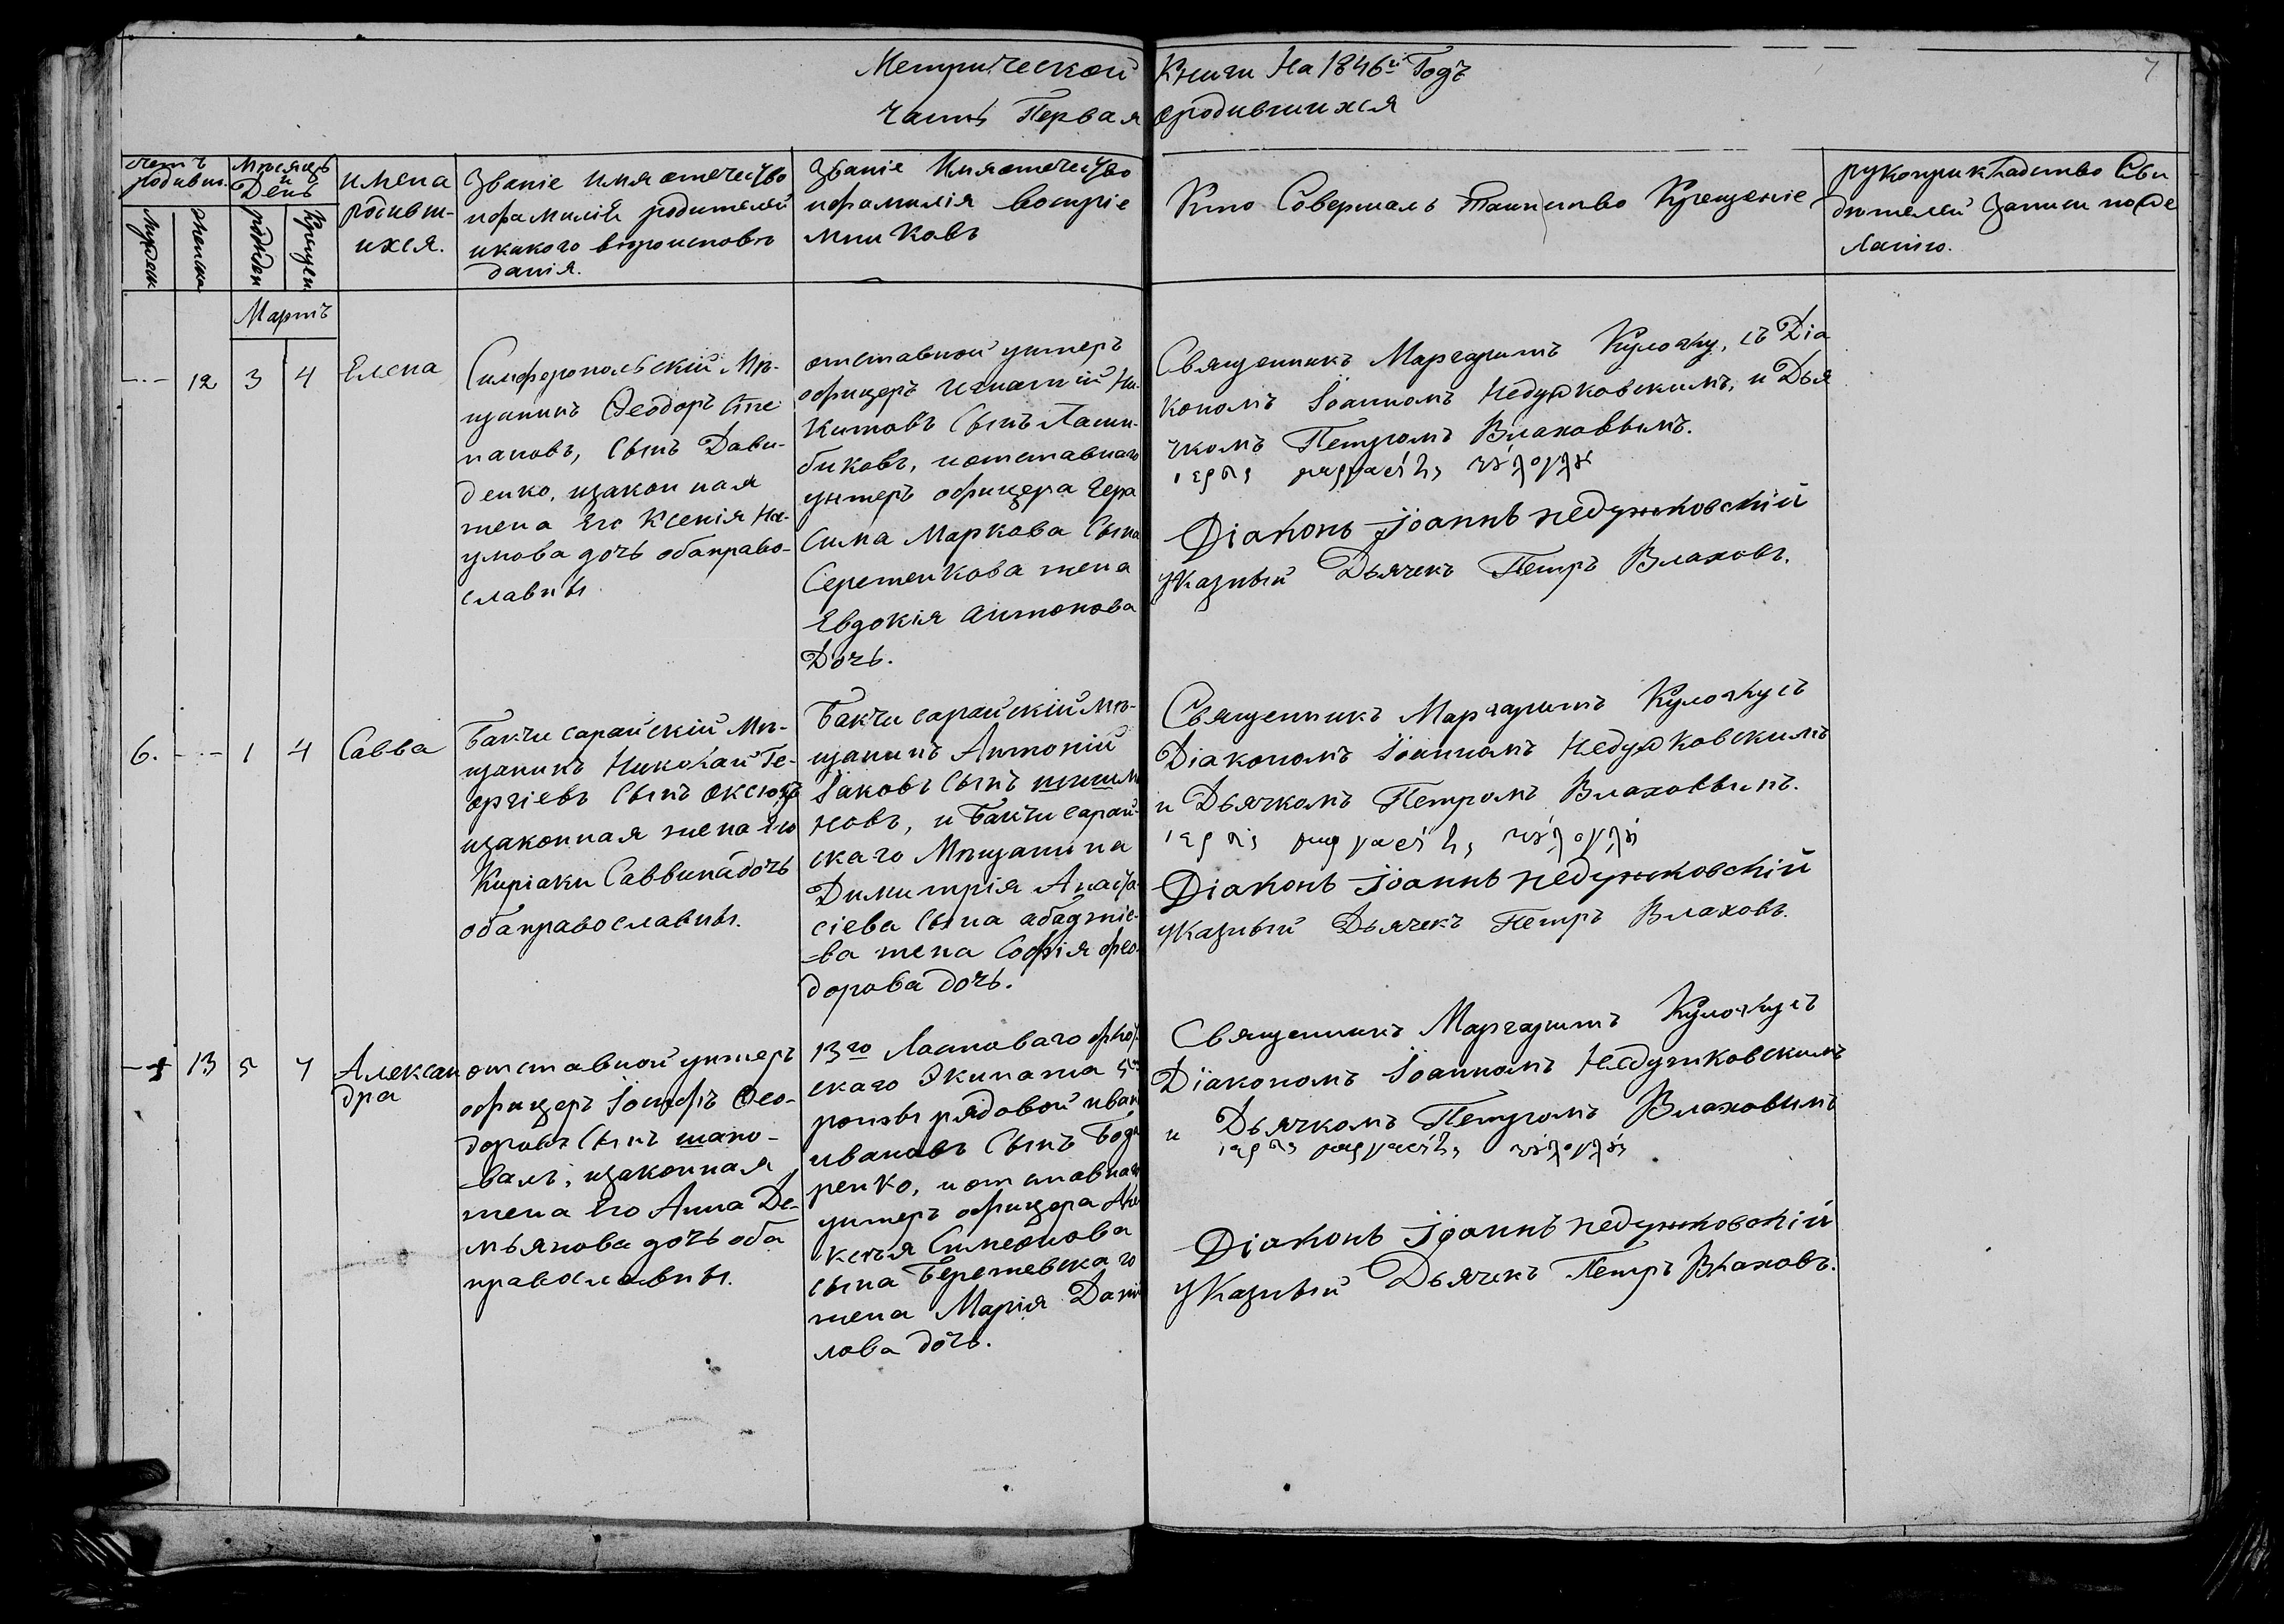 Метрической Книги На 1846й Годъ
Часть Первая о родившихся
7
счетъ родивш.
Мѣсяцъ и День
имена родивш-ихся.
Званіе имя отечество
и фамилія родителей
и какого вѣроисповѣ
данія.
Званіе Имя отечество
и фамилія Воспріе
мниковъ
Кто Совершалъ Таинство Крещеніе
рукоприкладство Сви
дѣтелей Записи по же
ланію.
Мартъ
12 3 4 Елена
Симферопольскій Мѣ-
щанинъ Ѳеодоръ Сте
пановъ, Сынъ Дави-
денко, изаконная
жена Его Ксенія На-
умова дочь оба право-
славны
отставной унтеръ
офицеръ Игнатій Ни-
китовъ Сынъ
биковъ, и отставнаго
унтеръ офицера Гера
сима Маркова Сына
Сереженкова жена
Евдокія Антонова
Дочь.
Священникъ Маргаритъ Кулогжу, съ Діа
кономъ Іоанномъ Недужковскимъ, и Дья
чкомъ Петромъ Влаховымъ.
Діаконъ Іоаннъ Недужковскій
указный Дьячекъ Петръ Влаховъ.
6. 1 4 Савва
Бакчисарайскій Мѣ-
щанинъ Николай Ге-
оргіевъ Сынъ Оксюзъ
изаконная жена Его
Киріаки Саввина дочь
оба православны.
Бакчисарайскій Мѣ-
щанинъ Антоній
Іаковъ Сынъ
новъ, и Бакчисарай-
скаго Мѣщанина
Димитрія Анаста-
сіева Сына Абаджіе-
=ва жена Софія Фео-
дорова дочь.
Священникъ Маргаритъ Кулогжу съ
Діакономъ Іоанномъ Недужковскимъ
и Дьячкомъ Петромъ Влаховымъ.
Діаконъ Іоаннъ Недужковскій
указный Дьячекъ Петръ Влаховъ.
13 5 7 Алексан
дра
отставной унтеръ
офицеръ Іосифъ Ѳео-
доровъ Сынъ Шапо-
=валъ, изаконная
жена Его Анна Де-
мьянова дочь оба
православны.
13го Ластоваго флот
скаго Экипажа 5й
роты рядовой Иван
Ивановъ Сынъ Бонда
ренко, и отставнаго
унтеръ офицера
Симеонова
сына Бережевскаго
жена Марія Дани
лова дочь.
Священникъ Маргаритъ Кулогжу съ
Діакономъ Іоанномъ Недужковскимъ
и Дьячкомъ Петромъ Влаховымъ
Діаконъ Іоаннъ Недужковскій
Указный Дьячекъ Петръ Влаховъ.